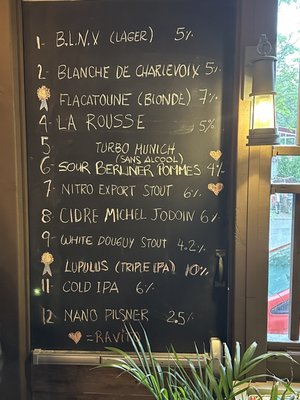 1- B.L.N.X (LAGER) 5%
2- BLANCHE DE CHARLEVOIX 5%
FLACATOUNE (BLONDE) 7%
4- LA ROUSSE 5%
5- TURBO MUNICH
(SANS ALCOOL)
6- SOUR BERLINER POMMES 4%
7- NITRO EXPORT STOUT 6%
8- CIDRE MICHEL JODOIN 6%
9- WHITE DOUGUY STOUT 4.2%
LUPULUS (TRIPLE IPA) 10%
11- COLD IPA 6%
12 NANO PILSNER 2.5%